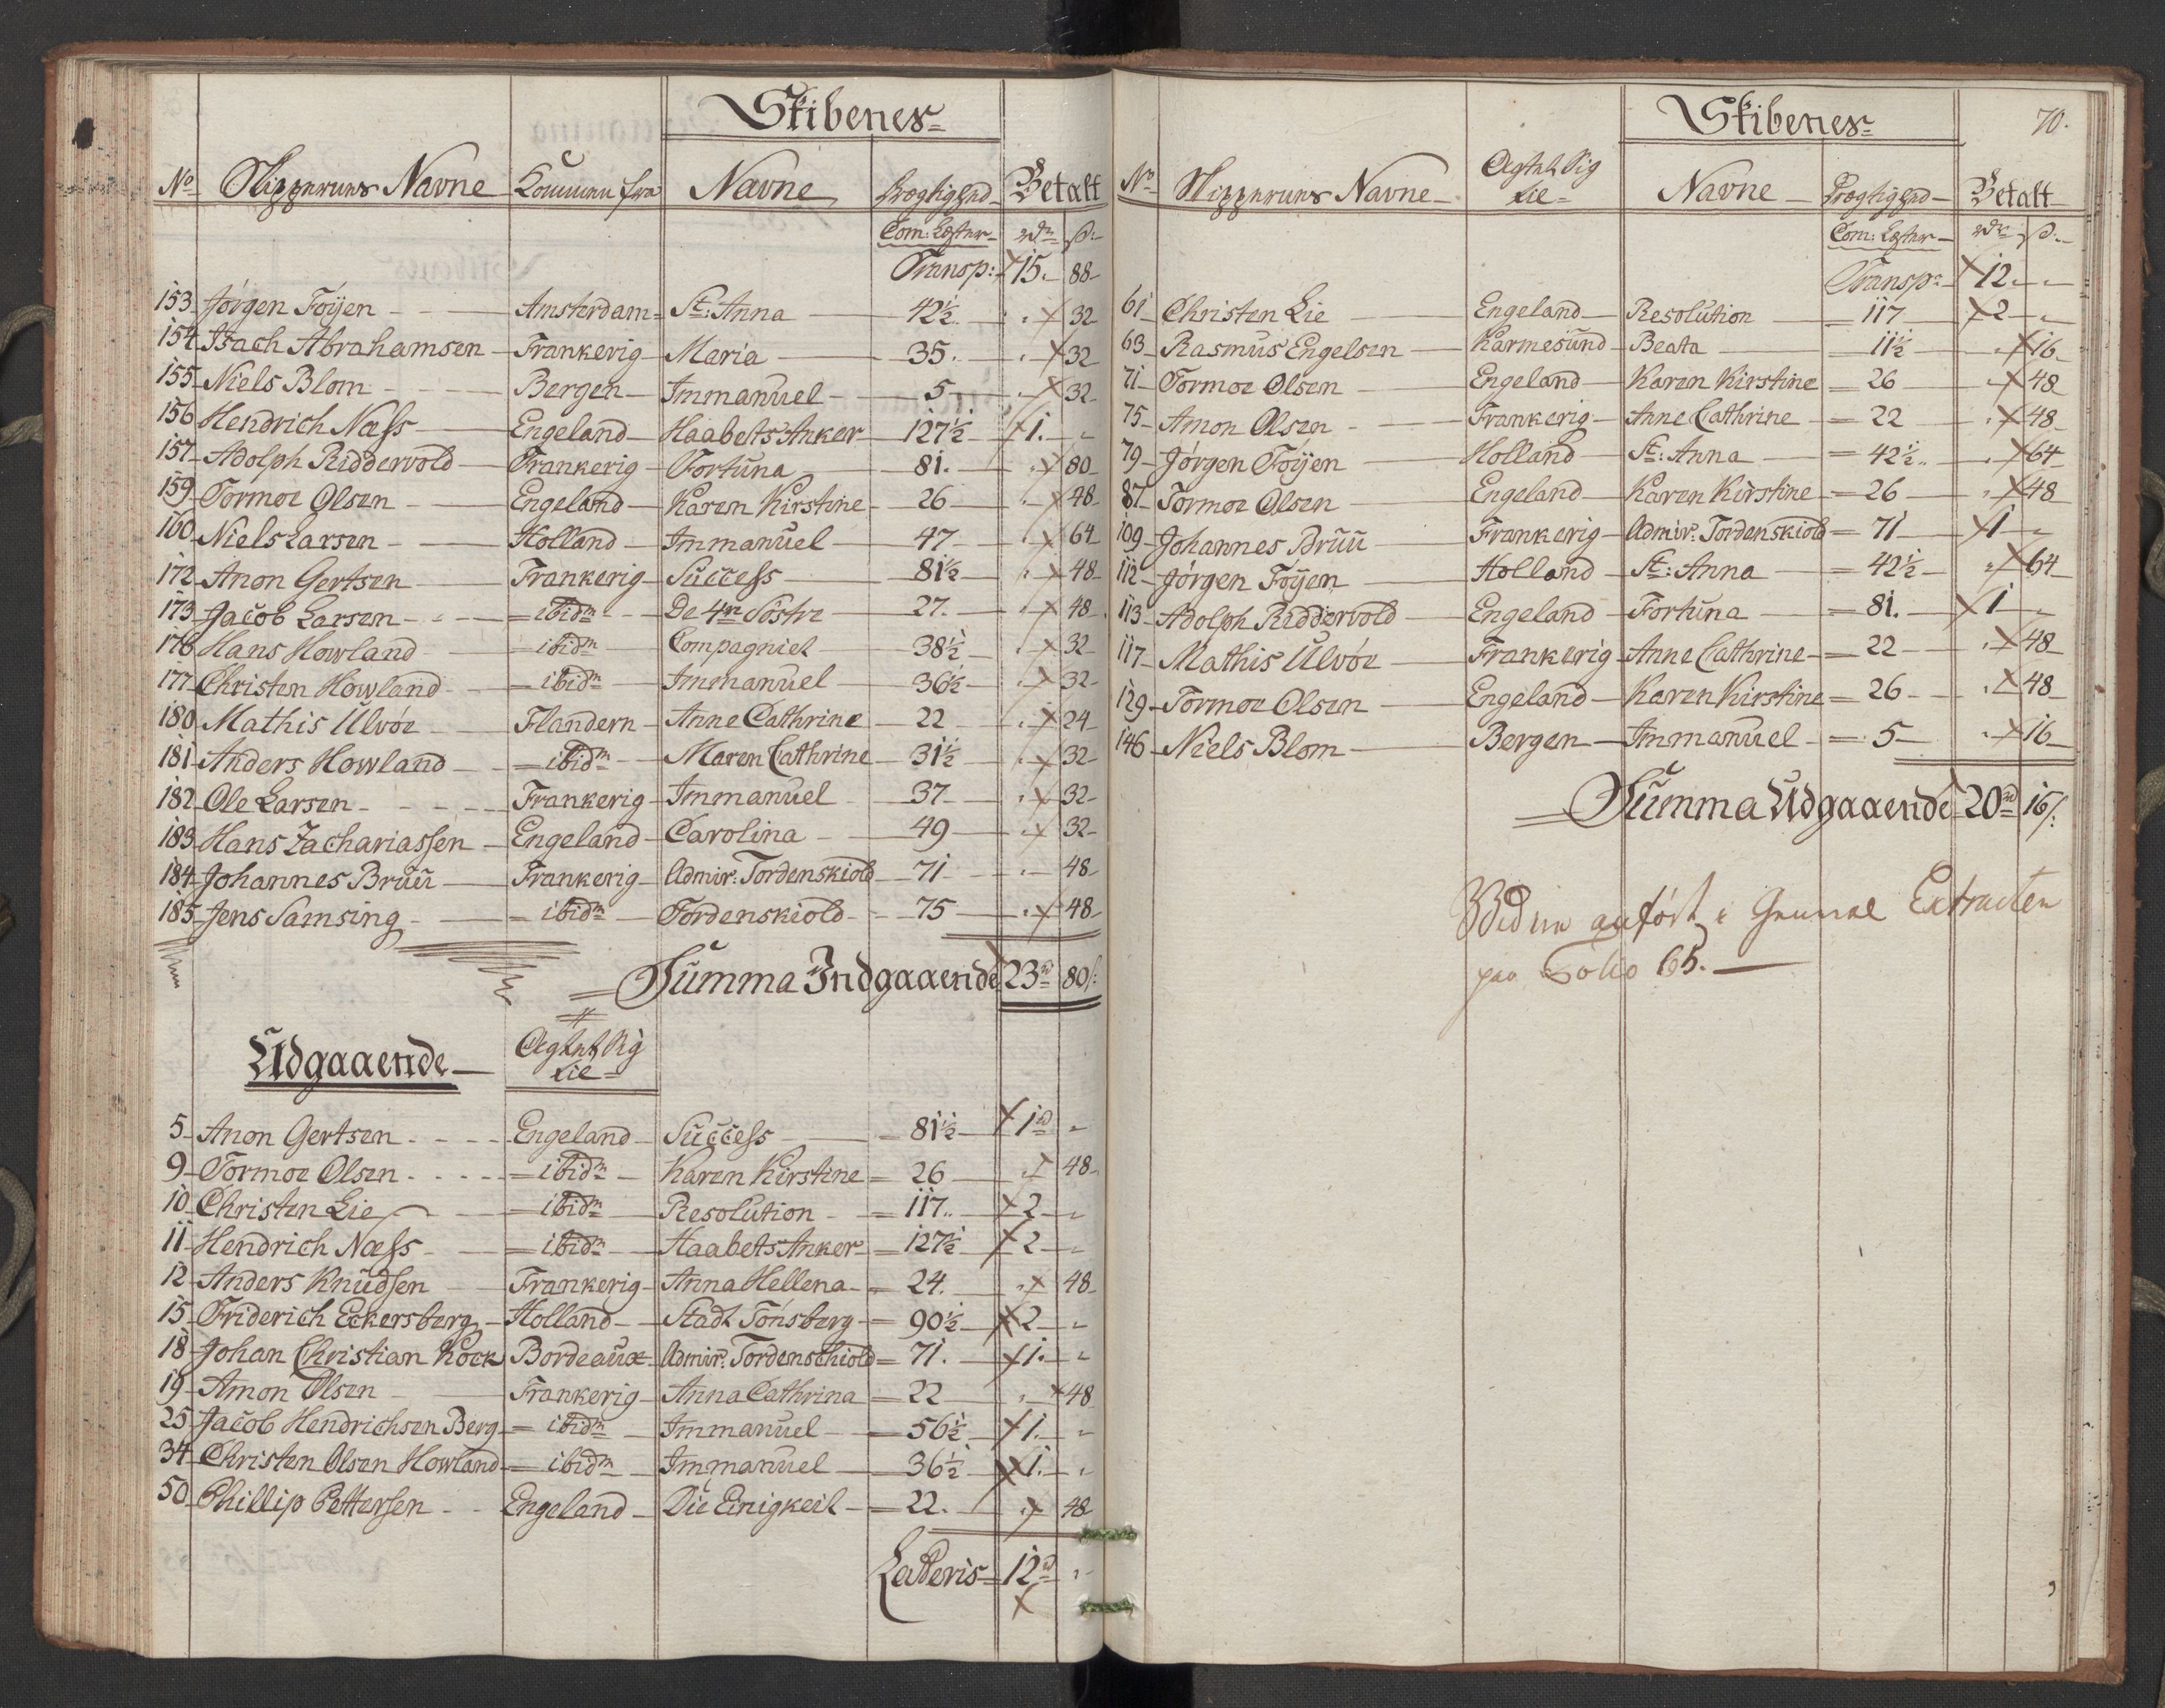 Skibenes
No Skippernes Navne Kommen fra Navne Drægtighed Betalt
Com: Læster rdr ß:
Transp: 15. 88
153 Jørgen Föyen Amsterdam St: Anna 42½ " 32
154 Isach Abrahamsen Frankerig Maria 35. " 32
155 Niels Blom Bergen Immanuel 5 " 32
156 Hendrich Næss Engeland Haabets Anker 127½ 1. "
157 Adolph Riddervold Frankerig Fortuna 81. " 80
159 Tormoe Olsen Engeland Karen Kirstine 26 " 48
160 Niels Larsen Holland Immanuel 47 " 64
172 Anon Gertsen Frankerig Success 81½ " 48
173 Jacob Larsen ibidm De 4re Söstre 27. " 48
176 Hans Howland ibidm Compagniet 38½ " 32
177 Christen Howland ibidm Immanuel 36½ " 32
180 Mathis Ulvöe Flandern Anne Cathrine 22 " 24
181 Anders Howland ibidm Maren Cathrine 31½ " 32
182 Ole Larsen Frankerig Immanuel 37 " 32
183 Hans Zachariassen Engeland Carolina 49 " 32
184 Johannes Bruu Frankerig Admir: Tordenskiold 71 " 48
185 Jens Samsing ibidm Tordenskiold 75 " 48
Summa Indgaaende 23rd 80ß:
Udgaaende Agtet Sig til
5 Anon Gertsen Engeland Success 81½ 1rd "
9 Tormoe Olsen ibidm Karen Kirstine 26 " 48
10 Christen Lie ibidm Resolution 117. 2 "
11 Hendrich Næss ibidm Haabets Anker 127½ 2 "
12 Anders Knudsen Frankerig Anna Hellena 24. " 48
15 Friderich Eckersberg Holland Stadt Tönsberg 90½ 2 "
18 Johan Christian Kock Bordeaux Admir: Tordenschiold 71. 1. "
19 Amon Olsen Frankerig Anna Cathrina 22 " 48
25 Jacob Hendrichsen Berg ibidm Immanuel 56½ 1. "
34 Christen Olsen Howland ibidm Immanuel 36½ 1. "
50 Phillip Pettersen Engeland Die Einigkeit 22. " 48
Latteris 12rd "
70.
Skibenes
No Skippernes Navne Agtet Sig til Navne Drægtighed Betalt
Com: Læster rdr ß:
Transp: 12. "
61 Christen Lie Engeland Resolution 117 2 "
63 Rasmus Engelsen Karmesund Beata 11½ " 16
71 Tormoe Olsen Engeland Karen Kirstine 26 " 48
75 Amon Olsen Frankerig Anne Cathrine 22 " 48
79 Jörgen Föyen Holland St: Anna 42½ " 64
87 Tormoe Olsen Engeland Karen Kirstine 26 " 48
109 Johannes Bruu Frankerig Admir: Tordenskiold 71 1 "
112 Jörgen Föyen Holland St: Anna 42½ " 64
113 Adolph Riddervold Engeland Fortuna 81. 1 "
117 Mathis Ulvöe Frankerig Anne Cathrine 22 " 48
129 Tormoe Olsen Engeland Karen Kirstine 26 " 48
146 Niels Blom Bergen Immanuel 5 " 16
Summa Udgaaende 20rd 16ß:
anfört i General Extracten
paa Folio 65.